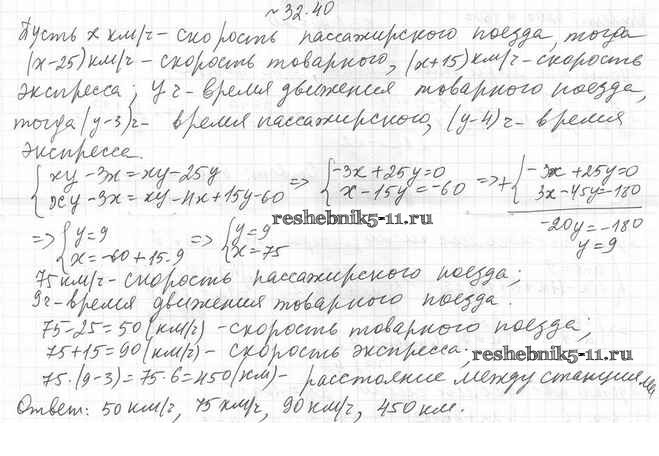 №32.40
Пусть x км/ч - скорость пассажирского поезда, тогда
(x-25) км/ч - скорость товарного, (x+15) км/ч - скорость
экспресса; y ч - время движения товарного поезда,
тогда (y-3) ч - время пассажирского, (y-4) ч - время
экспресса.
{xy-3x=xy-25y => {-3x+25y=0 => +{-3x+25y=0
{xy-3x=xy-4x+15y-60 {x-15y=-60 {3x-45y=-180
reshebnik5-11.ru
-20y=-180
y=9
=> {y=9 => {y=9
{x=-60+15·9 {x=75
75 км/ч - скорость пассажирского поезда;
9 ч - время движения товарного поезда.
75-25=50 (км/ч) - скорость товарного поезда;
75+15=90 (км/ч) - скорость экспресса;
reshebnik5-11.ru
75·(9-3)=75·6=450 (км) - расстояние между станциями
Ответ: 50 км/ч, 75 км/ч, 90 км/ч, 450 км.